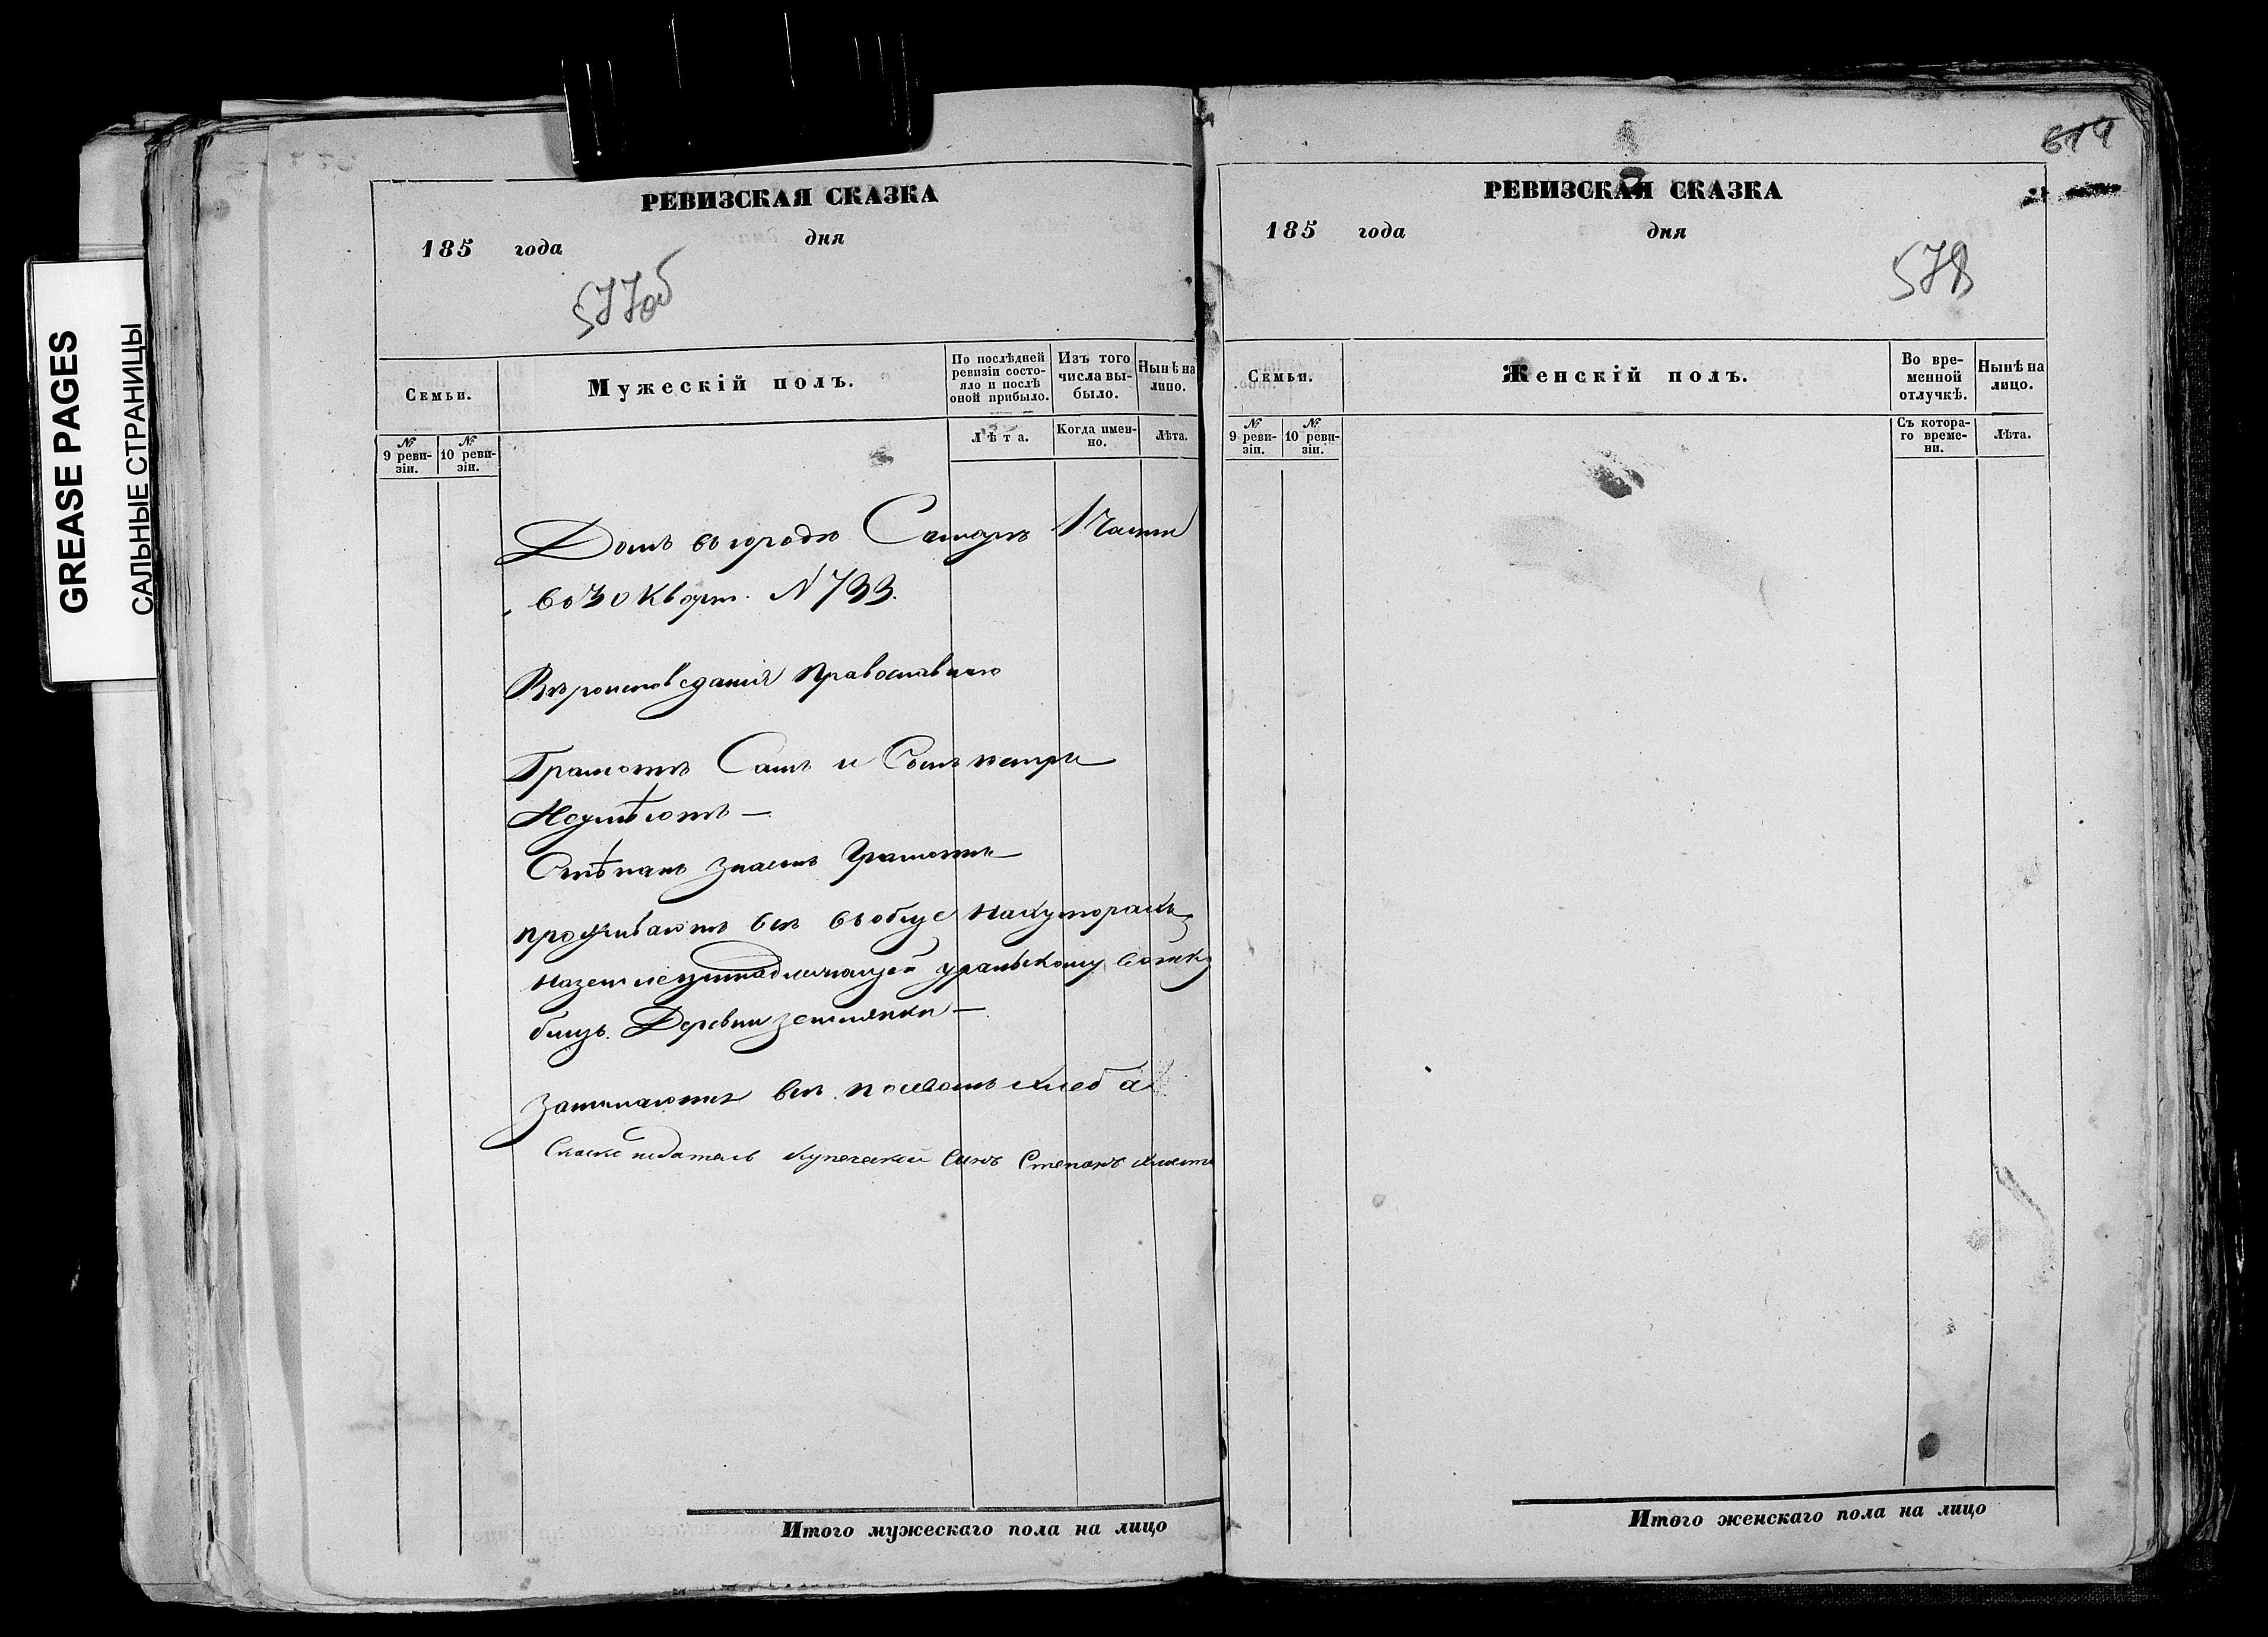 GREASE PAGES
САЛЬНЫЕ СТРАНИЦЫ
РЕВИЗСКАЯ СКАЗКА
185 года дня
577об
Семьи.
Мужескій полъ.
По послѣдней ревизіи состояло и послѣ оной прибыло.
Изъ того числа выбыло.
Нынѣ на лицо.
№ 9 ревизіи.
№ 10 ревизіи.
Лѣта.
Когда именно.
Лѣта.
Домъ въ городѣ Самарѣ 1 Части
во 30 Кварт. N 733.
Вѣроисповеданія православнаго
Грамотѣ Самъ и Сынъ петръ
Неумѣютъ —
Степанъ знаетъ Грамотѣ
проживаютъ всѣ вобще нахуторахъ
наземле принадлежащей уральскому войску
близъ Деревни землянки —
Занимаются всѣ посевомъ хлеба
купеческий Сынъ Степанъ
Итого мужескаго пола на лицо
614
РЕВИЗСКАЯ СКАЗКА
185 года дня
578
Семьи.
Женскій полъ.
Во временной отлучкѣ.
Нынѣ на лицо.
№ 9 ревизіи.
№ 10 ревизіи.
Съ котораго времени.
Лѣта.
Итого женскаго пола на лицо